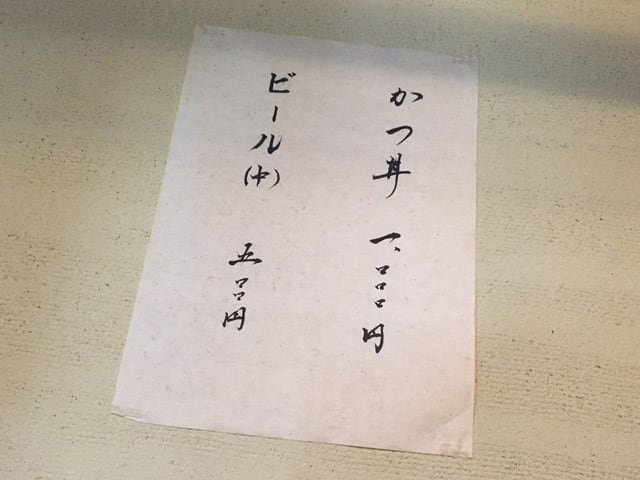 かつ丼 一、〇〇〇円
ビール(中) 五〇〇円